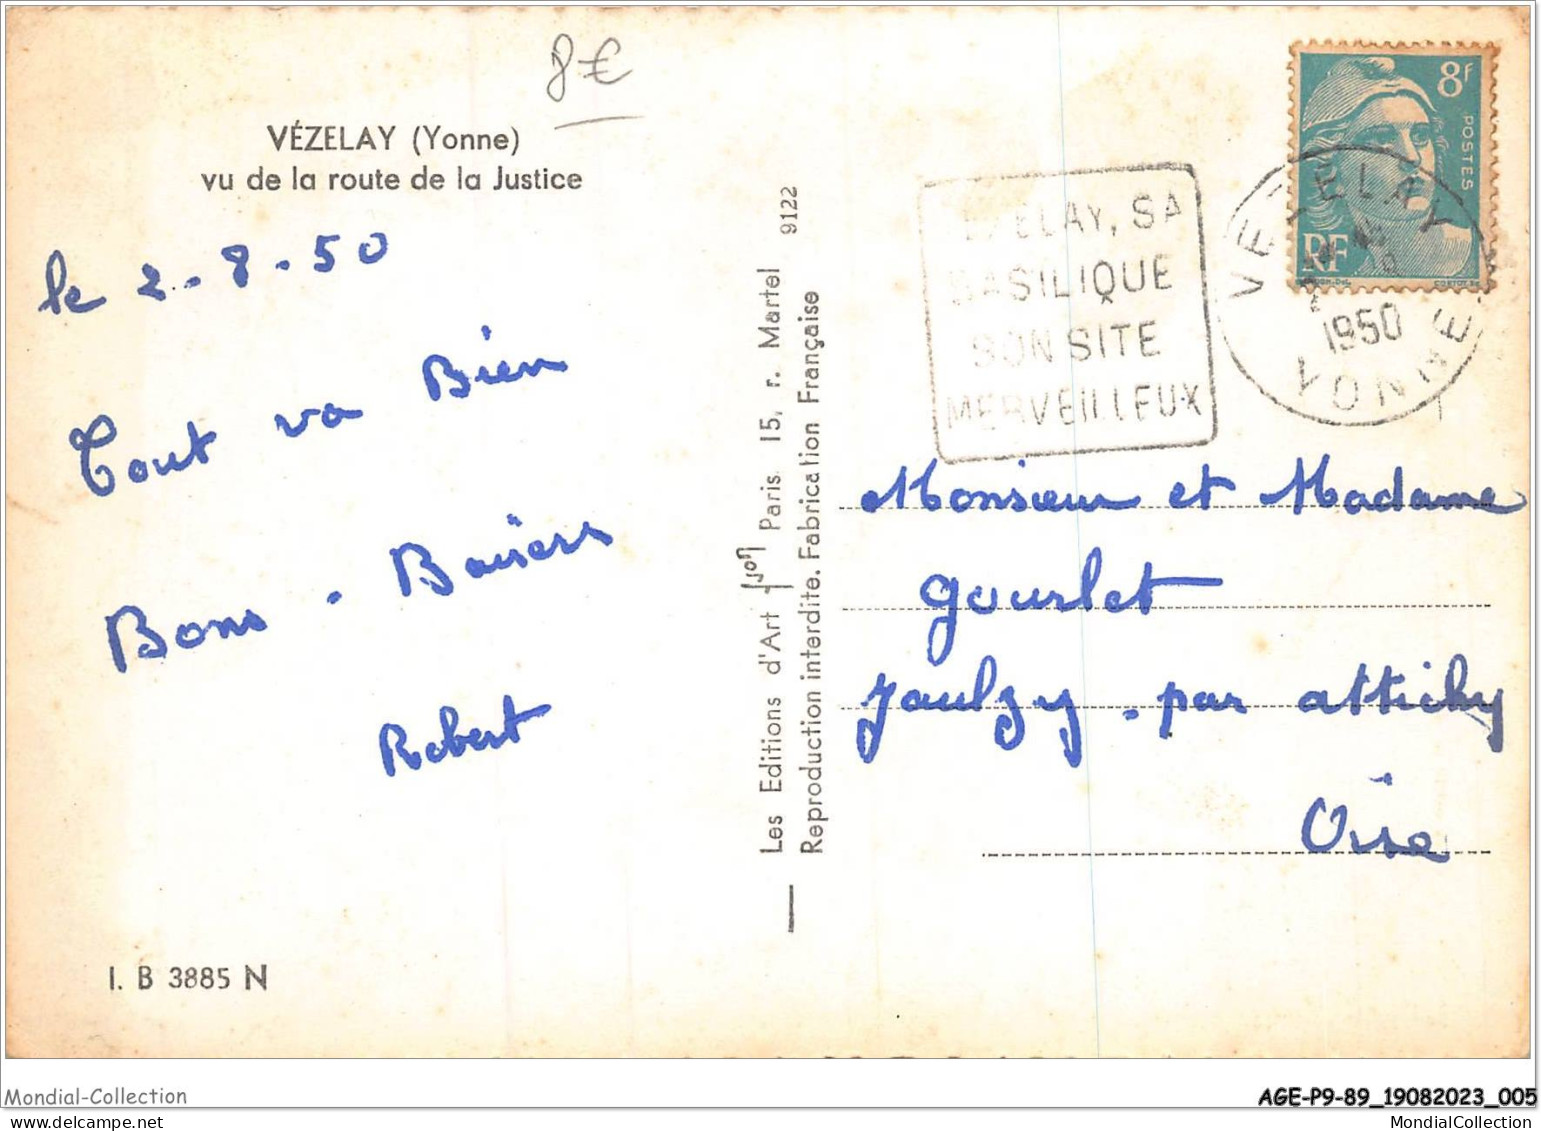 8€
VÉZELAY (Yonne)
vu de la route de la Justice
le 2-8-50
Tout va Bien
Bons - Baisers
Robert
I. B 3885 N
Les Editions d'Art Yvon Paris 15, r. Martel 9122
Reproduction interdite. Fabrication Française
VEZELAY, SA
BASILIQUE
SON SITE
MERVEILLEUX
8F
POSTES
RF
VEZELAY
1950
YONNE
Monsieur et Madame
Gourlet
Jaulzy - par Attichy
Oise
Mondial-Collection
AGE-P9-89_19082023_005
MondialCollection